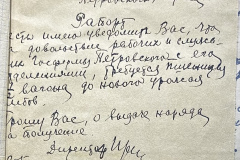 Рапорт
честь имею уведомить Вас, что
довольствие рабочих и служа-
Госфирму Петровского с его
делениями, требуется пшеницы
вагона до нового урожая
прошу Вас, о выдаче наряда
на получение
Директор